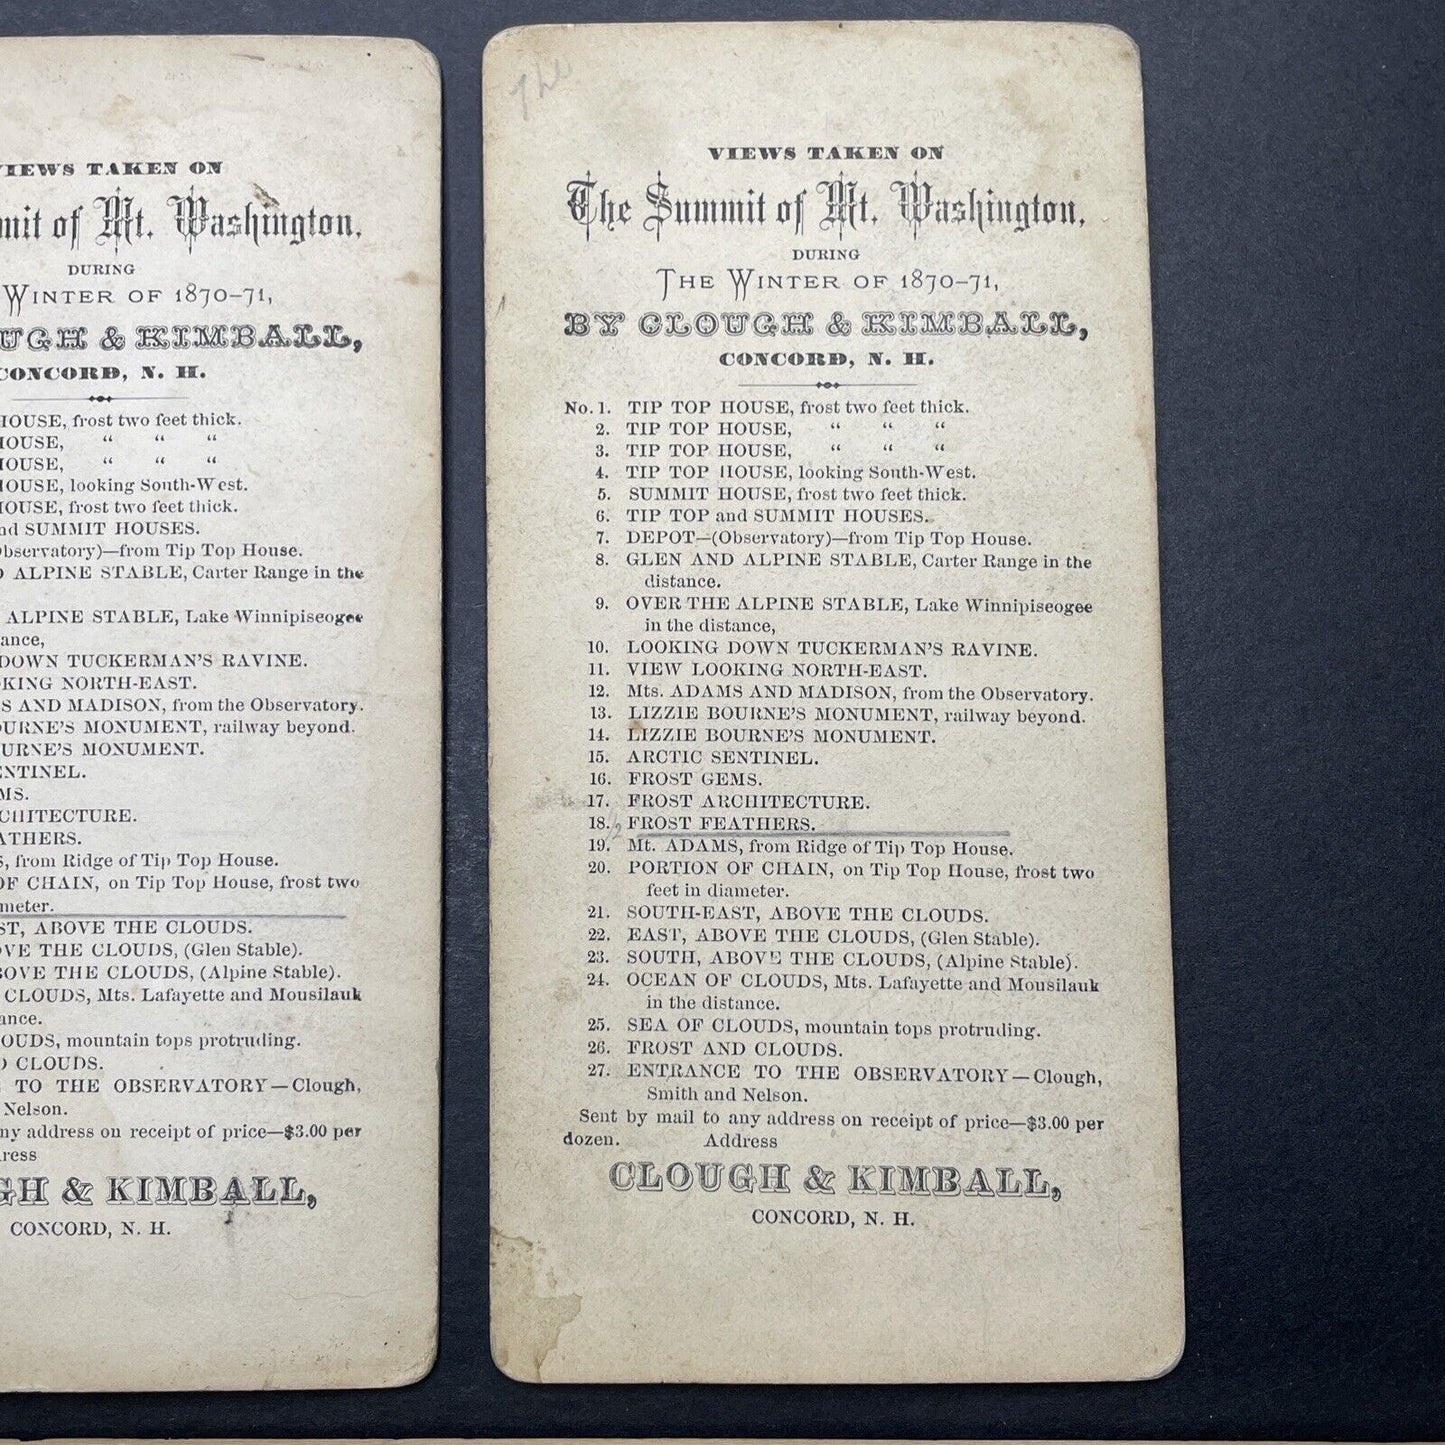 VIEWS TAKEN ON
mit of Mt. Washington,
DURING
WINTER OF 1870-71,
UGH & KIMBALL,
CONCORD, N. H.
HOUSE, frost two feet thick.
HOUSE, “ “ “
HOUSE, “ “ “
HOUSE, looking South-West.
HOUSE, frost two feet thick.
nd SUMMIT HOUSES.
Observatory)—from Tip Top House.
D ALPINE STABLE, Carter Range in the
ALPINE STABLE, Lake Winnipiseogee
ance,
DOWN TUCKERMAN'S RAVINE.
KING NORTH-EAST.
S AND MADISON, from the Observatory.
OURNE'S MONUMENT, railway beyond.
OURNE'S MONUMENT.
ENTINEL.
MS.
CHITECTURE.
ATHERS.
S, from Ridge of Tip Top House.
OF CHAIN, on Tip Top House, frost two
meter.
ST, ABOVE THE CLOUDS.
OVE THE CLOUDS, (Glen Stable).
BOVE THE CLOUDS, (Alpine Stable).
CLOUDS, Mts. Lafayette and Mousilauk
ance.
LOUDS, mountain tops protruding.
D CLOUDS.
E TO THE OBSERVATORY—Clough,
Nelson.
ny address on receipt of price—$3.00 per
ress
GH & KIMBALL,
CONCORD, N. H.
The
VIEWS TAKEN ON
The Summit of Mt. Washington,
DURING
THE WINTER OF 1870-71,
BY CLOUGH & KIMBALL,
CONCORD, N. H.
No. 1. TIP TOP HOUSE, frost two feet thick.
2. TIP TOP HOUSE, “ “ “
3. TIP TOP HOUSE, “ “ “
4. TIP TOP HOUSE, looking South-West.
5. SUMMIT HOUSE, frost two feet thick.
6. TIP TOP and SUMMIT HOUSES.
7. DEPOT—(Observatory)—from Tip Top House.
8. GLEN AND ALPINE STABLE, Carter Range in the
distance.
9. OVER THE ALPINE STABLE, Lake Winnipiseogee
in the distance,
10. LOOKING DOWN TUCKERMAN'S RAVINE.
11. VIEW LOOKING NORTH-EAST.
12. Mts. ADAMS AND MADISON, from the Observatory.
13. LIZZIE BOURNE'S MONUMENT, railway beyond.
14. LIZZIE BOURNE'S MONUMENT.
15. ARCTIC SENTINEL.
16. FROST GEMS.
17. FROST ARCHITECTURE.
18. FROST FEATHERS.
19. Mt. ADAMS, from Ridge of Tip Top House.
20. PORTION OF CHAIN, on Tip Top House, frost two
feet in diameter.
21. SOUTH-EAST, ABOVE THE CLOUDS.
22. EAST, ABOVE THE CLOUDS, (Glen Stable).
23. SOUTH, ABOVE THE CLOUDS, (Alpine Stable).
24. OCEAN OF CLOUDS, Mts. Lafayette and Mousilauk
in the distance.
25. SEA OF CLOUDS, mountain tops protruding.
26. FROST AND CLOUDS.
27. ENTRANCE TO THE OBSERVATORY—Clough,
Smith and Nelson.
Sent by mail to any address on receipt of price—$3.00 per
dozen. Address
CLOUGH & KIMBALL,
CONCORD, N. H.